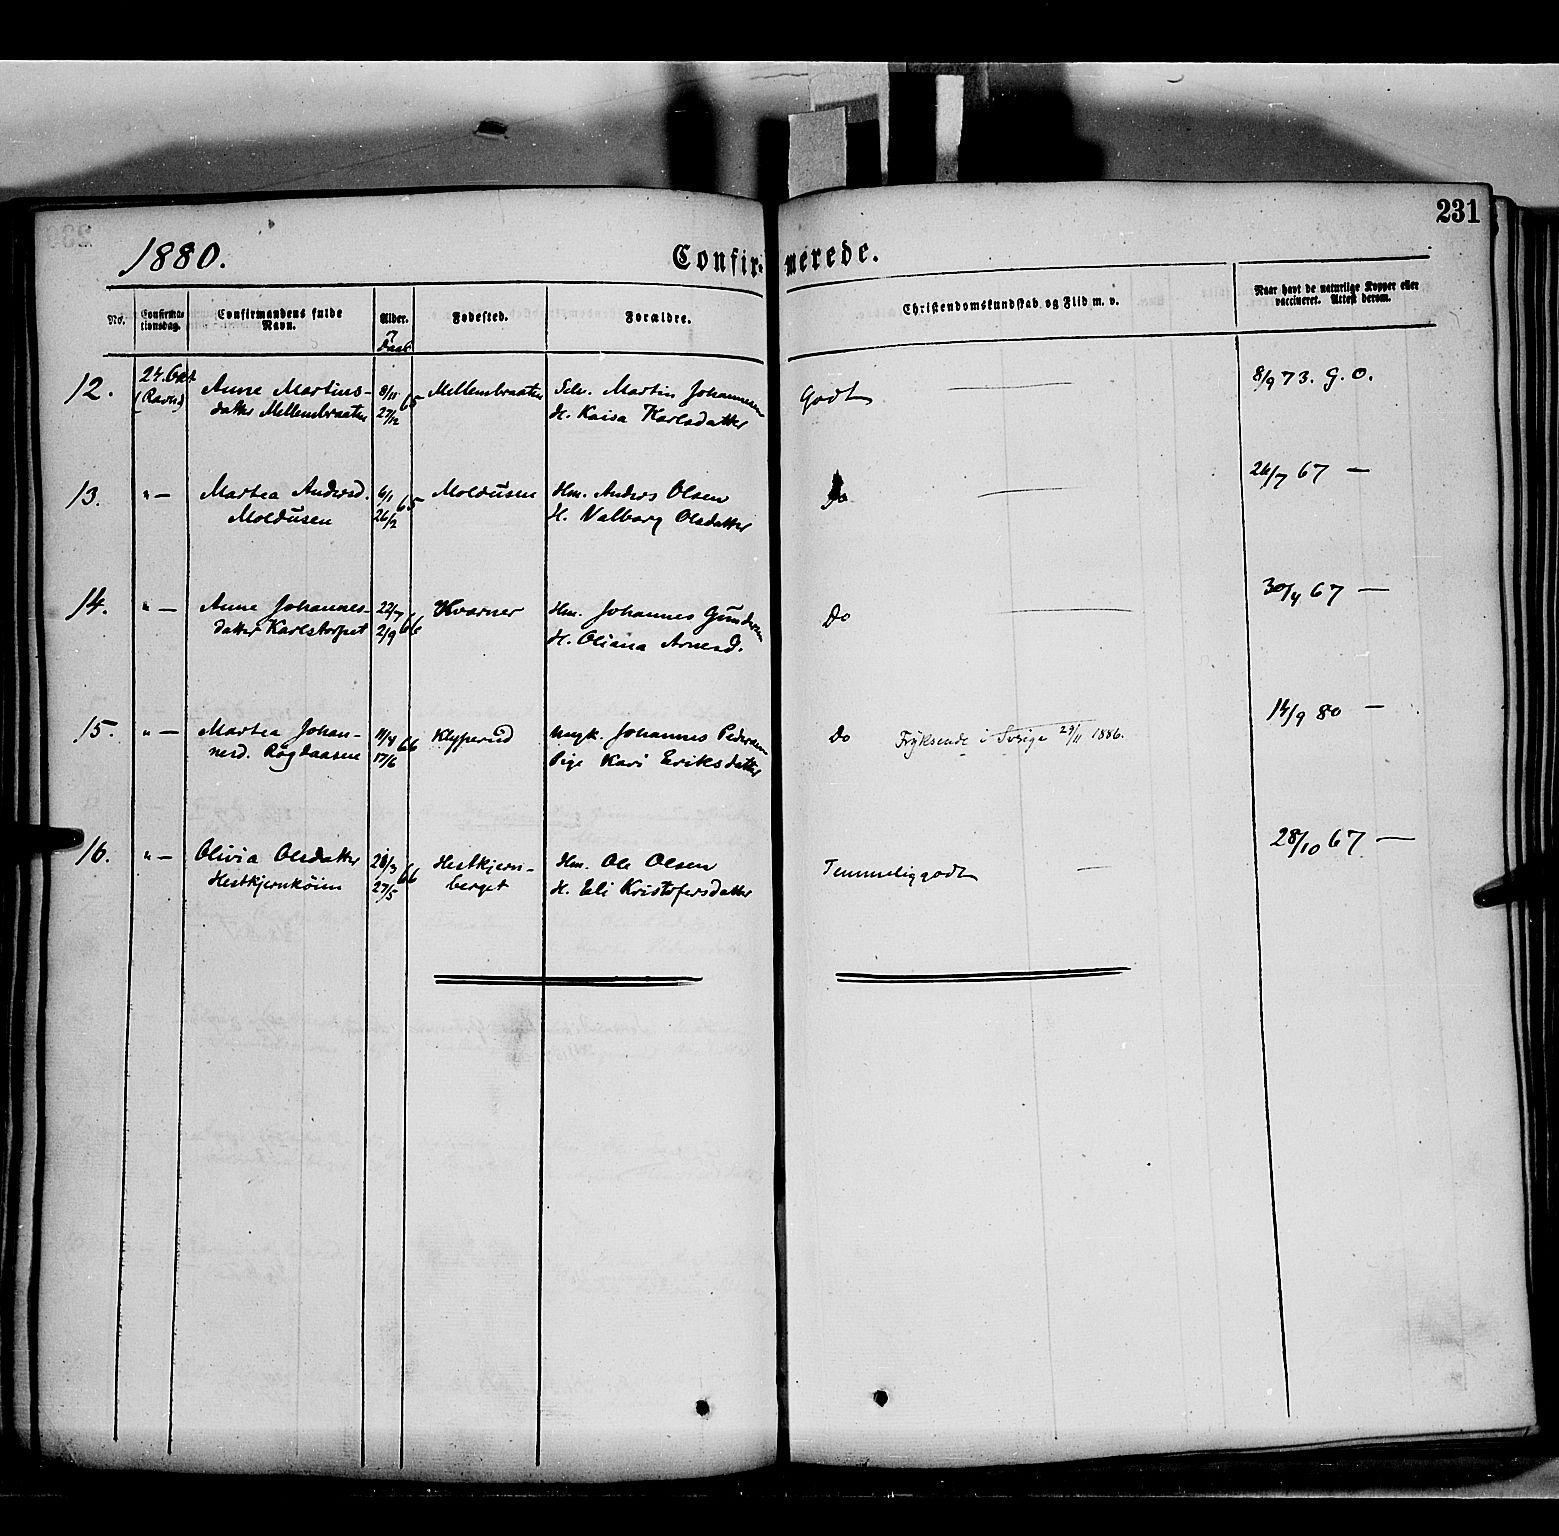 231
1880.
Confir- merede.
No.
Confirma-
tionsdag.
Confirmandens fulde
Navn.
Alder.
Daab
Fødested.
Forældre.
Christendomskundskab og Flid m. v.
Naar havt de naturlige Kopper eller
vaccineret. Attest derom.
12. 24. Okt. Anne Martins- 8/11 65 Mellembraaten Selv. Martin Johannesen Godt — 8/9 73. G. O.
(Ravns) datter Mellembraaten 27/12 H. Kaisa Karlsdatter
13. " — Martea Andersd. 6/1 65 Moldusen Hm. Anders Olsen Do — 26/7 67 —
Moldusen 26/2 H. Valborg Olsdatter
14. " — Anne Johannes- 22/7 66 Kvarner Hm. Johannes Gundersen Do — 30/4 67 —
datter Karlstorpet 2/9 H. Oliana Arnesd.
15. " — Martea Johan- 11/4 66 Klyperud Ungk. Johannes Pedersen Do Fryksende i Sverige 29/11 1886. 14/9 80 —
nesd. 17/6 Pige Kari Eriksdatter
16. " — Olivia Olsdatter 28/3 66 Hestkjern- Hm. Ole Olsen Temmelig godt — 28/10 67 —
Hestkjernkøien 27/5 berget H. Eli Kristofersdatter